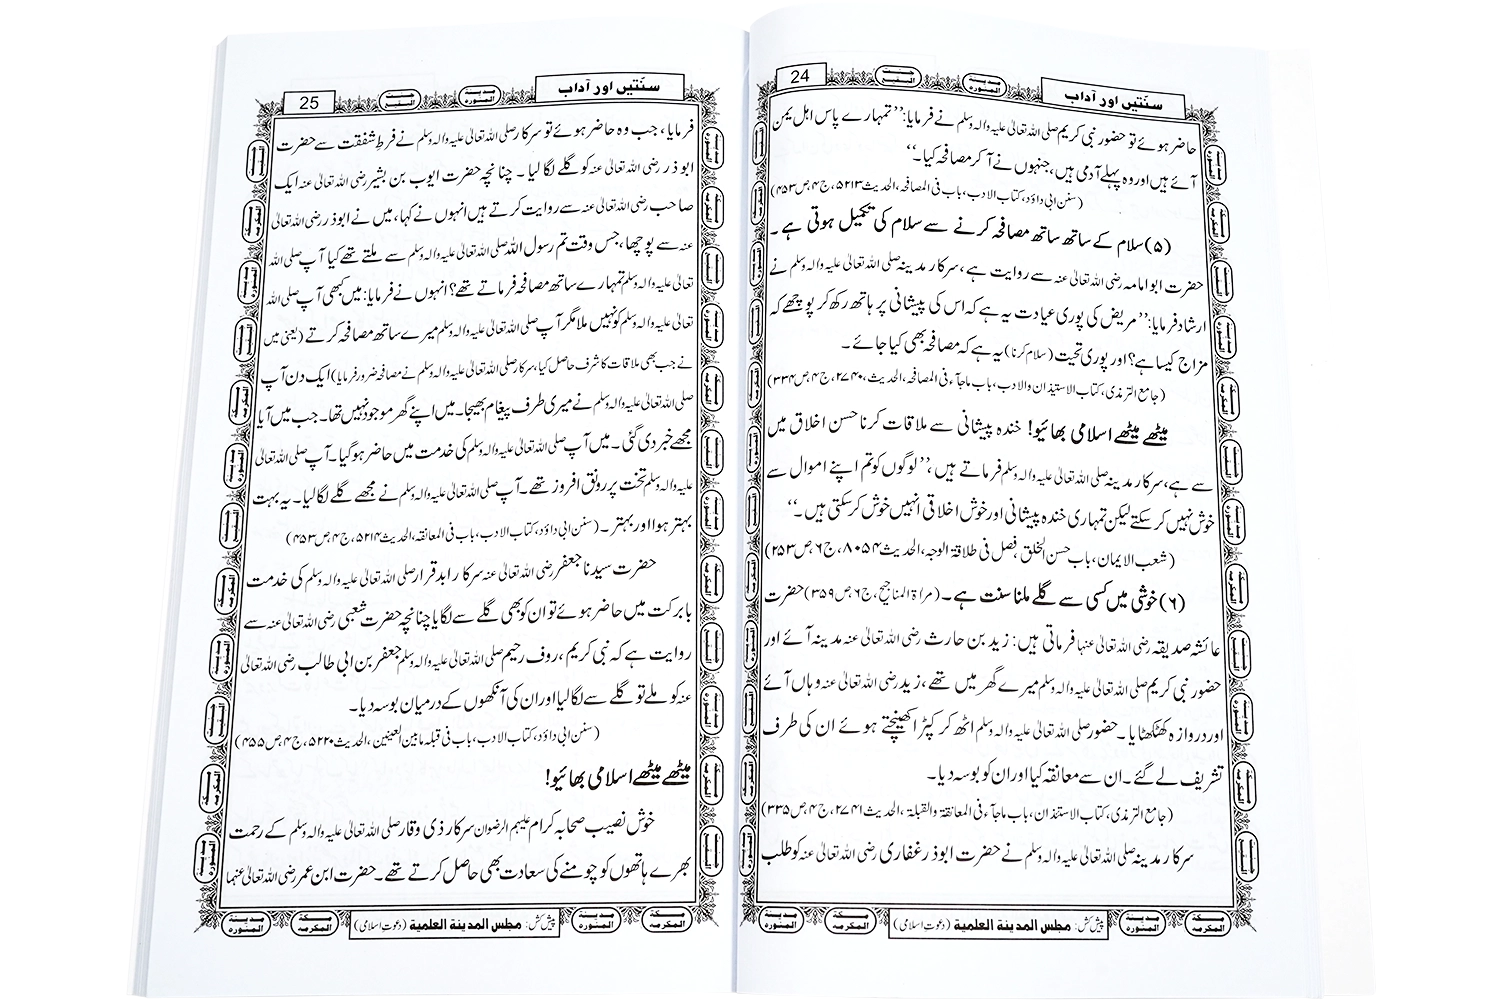 24
سنتیں اور آداب
حاضر ہوئے تو حضور نبی کریم صلی اللہ تعالیٰ علیہ والہ وسلم نے فرمایا:’’تمہارے پاس اہل یمن
آئے ہیں اور وہ پہلے آدمی ہیں، جنہوں نے آ کر مصافحہ کیا۔‘‘
(سنن ابی داؤد، کتاب الادب، باب فی المصافحہ، الحدیث ۵۲۱۳، ج۴ ص۴۵۳)
(۵) سلام کے ساتھ ساتھ مصافحہ کرنے سے سلام کی تکمیل ہوتی ہے۔
حضرت ابو امامہ رضی اللہ تعالیٰ عنہ سے روایت ہے، سرکار مدینہ صلی اللہ تعالیٰ علیہ والہ وسلم نے
ارشاد فرمایا:’’مریض کی پوری عیادت یہ ہے کہ اس کی پیشانی پر ہاتھ رکھ کر پوچھے کہ
مزاج کیسا ہے؟ اور پوری تحیت (سلام کرنا) یہ ہے کہ مصافحہ بھی کیا جائے۔
(جامع الترمذی، کتاب الاستیذان والادب، باب ماجآء فی المصافحہ، الحدیث، ۲۷۴۰، ج۴، ص۳۳۴)
میٹھے میٹھے اسلامی بھائیو! خندہ پیشانی سے ملاقات کرنا حسن اخلاق میں
سے ہے، سرکار مدینہ صلی اللہ تعالیٰ علیہ والہ وسلم فرماتے ہیں، ’’لوگوں کو تم اپنے اموال سے
خوش نہیں کر سکتے لیکن تمہاری خندہ پیشانی اور خوش اخلاقی انہیں خوش کر سکتی ہیں۔‘‘
(شعب الایمان، باب حسن الخلق، فصل فی طلاقۃ الوجہ، الحدیث ۸۰۵۴، ج۶ ص۲۵۳)
(۶) خوشی میں کسی سے گلے ملنا سنت ہے۔ (مراۃ المناجیح، ج۶ ص۳۵۹) حضرت
عائشہ صدیقہ رضی اللہ تعالیٰ عنہا فرماتی ہیں: زید بن حارث رضی اللہ تعالیٰ عنہ مدینہ آئے اور
حضور نبی کریم صلی اللہ تعالیٰ علیہ والہ وسلم میرے گھر میں تھے، زید رضی اللہ تعالیٰ عنہ وہاں آئے
اور دروازہ کھٹکھٹایا۔ حضور صلی اللہ تعالیٰ علیہ والہ وسلم اٹھ کر کپڑا کھینچتے ہوئے ان کی طرف
تشریف لے گئے۔ ان سے معانقہ کیا اور ان کو بوسہ دیا۔
(جامع الترمذی، کتاب الاستئذان، باب ماجآء فی المعانقۃ والقبلۃ، الحدیث ۲۷۴۱، ج۴، ص۳۳۵)
سرکار مدینہ صلی اللہ تعالیٰ علیہ والہ وسلم نے حضرت ابو ذر غفاری رضی اللہ تعالیٰ عنہ کو طلب
پیش کش: مجلس المدینۃ العلمیۃ (دعوت اسلامی)
25
سنتیں اور آداب
فرمایا، جب وہ حاضر ہوئے تو سرکار صلی اللہ تعالیٰ علیہ والہ وسلم نے فرطِ شفقت سے حضرت
ابو ذر رضی اللہ تعالیٰ عنہ کو گلے لگا لیا۔ چنانچہ حضرت ایوب بن بشیر رضی اللہ تعالیٰ عنہ ایک
صاحب رضی اللہ تعالیٰ عنہ سے روایت کرتے ہیں انہوں نے کہا، میں نے ابو ذر رضی اللہ تعالیٰ
عنہ سے پوچھا، جس وقت تم رسول اللہ صلی اللہ تعالیٰ علیہ والہ وسلم سے ملتے تھے کیا آپ صلی اللہ
تعالیٰ علیہ والہ وسلم تمہارے ساتھ مصافحہ فرماتے تھے؟ انہوں نے فرمایا: میں کبھی آپ صلی اللہ
تعالیٰ علیہ والہ وسلم کو نہیں ملا مگر آپ صلی اللہ تعالیٰ علیہ والہ وسلم میرے ساتھ مصافحہ کرتے (یعنی میں
نے جب بھی ملاقات کا شرف حاصل کیا، سرکار صلی اللہ تعالیٰ علیہ والہ وسلم نے مصافحہ ضرور فرمایا) ایک دن آپ
صلی اللہ تعالیٰ علیہ والہ وسلم نے میری طرف پیغام بھیجا۔ میں اپنے گھر موجود نہیں تھا۔ جب میں آیا
مجھے خبر دی گئی۔ میں آپ صلی اللہ تعالیٰ علیہ والہ وسلم کی خدمت میں حاضر ہو گیا۔ آپ صلی اللہ تعالیٰ
علیہ والہ وسلم تخت پر رونق افروز تھے۔ آپ صلی اللہ تعالیٰ علیہ والہ وسلم نے مجھے گلے لگا لیا۔ یہ بہت
بہتر ہوا اور بہتر۔ (سنن ابی داؤد، کتاب الادب، باب فی المعانقہ، الحدیث ۵۲۱۴، ج۴ ص۴۵۳)
حضرت سیدنا جعفر رضی اللہ تعالیٰ عنہ سرکار ابد قرار صلی اللہ تعالیٰ علیہ والہ وسلم کی خدمت
بابرکت میں حاضر ہوئے تو ان کو بھی گلے سے لگایا چنانچہ حضرت شعبی رضی اللہ تعالیٰ عنہ سے
روایت ہے کہ نبی کریم، روف رحیم صلی اللہ تعالیٰ علیہ والہ وسلم جعفر بن ابی طالب رضی اللہ تعالیٰ
عنہ کو ملے تو گلے سے لگا لیا اور ان کی آنکھوں کے درمیان بوسہ دیا۔
(سنن ابی داؤد، کتاب الادب، باب فی قبلۃ مابین العینین، الحدیث ۵۲۲۰، ج۴ ص۴۵۵)
میٹھے میٹھے اسلامی بھائیو!
خوش نصیب صحابہ کرام علیہم الرضوان سرکار ذی وقار صلی اللہ تعالیٰ علیہ والہ وسلم کے رحمت
بھرے ہاتھوں کو چومنے کی سعادت بھی حاصل کرتے تھے۔ حضرت ابن عمر رضی اللہ تعالیٰ عنہما
پیش کش: مجلس المدینۃ العلمیۃ (دعوت اسلامی)